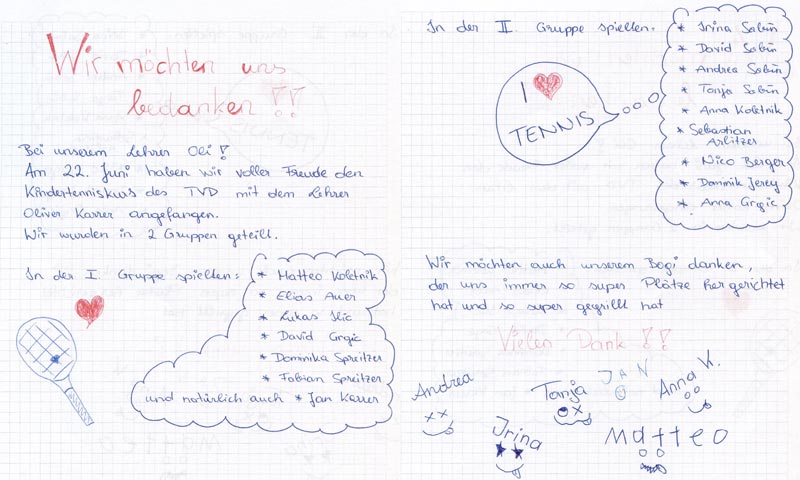 Wir möchten uns
bedanken !!
Bei unserem Lehrer Oli !
Am 22. Juni haben wir voller Freude den
Kindertenniskurs des TVD mit dem Lehrer
Oliver Karrer angefangen.
Wir wurden in 2 Gruppen geteilt.
In der I. Gruppe spielten:
* Matteo Koletnik
* Elias Auer
* Lukas Ilic
* David Grgic
* Dominika Spreitzer
* Fabian Spreitzer
und natürlich auch * Jan Karrer
In der II. Gruppe spielten:
* Irina Sabin
* David Sabin
* Andrea Sabin
* Tanja Sabin
* Anna Koletnik
* Sebastian
Arlitzer
* Nico Berger
* Dominik Jerey
* Anna Grgic
I
TENNIS
Wir möchten auch unserem Bogi danken,
der uns immer so super Plätze hergerichtet
hat und so super gegrillt hat
Vielen Dank !!
Andrea
Irina
Tanja
JAN
Matteo
Anna K.